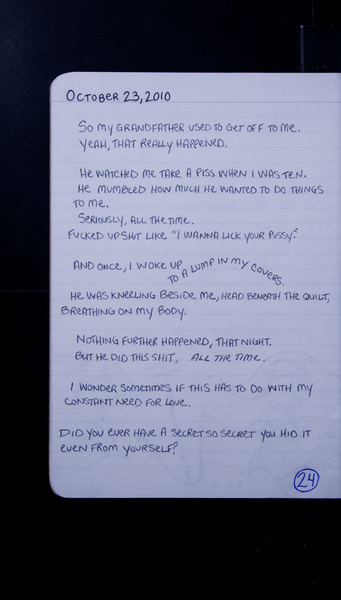 OCTOBER 23, 2010
SO MY GRANDFATHER USED TO GET OFF TO ME.
YEAH, THAT REALLY HAPPENED.
HE WATCHED ME TAKE A PISS WHEN I WAS TEN.
HE MUMBLED HOW MUCH HE WANTED TO DO THINGS
TO ME.
SERIOUSLY, ALL THE TIME.
FUCKED UP SHIT LIKE "I WANNA LICK YOUR PUSSY."
AND ONCE, I WOKE UP
TO A LUMP IN MY COVERS.
HE WAS KNEELING BESIDE ME, HEAD BENEATH THE QUILT,
BREATHING ON MY BODY.
NOTHING FURTHER HAPPENED, THAT NIGHT.
BUT HE DID THIS SHIT, ALL THE TIME.
I WONDER SOMETIMES IF THIS HAS TO DO WITH MY
CONSTANT NEED FOR LOVE.
DID YOU EVER HAVE A SECRET SO SECRET YOU HID IT
EVEN FROM YOURSELF?
24